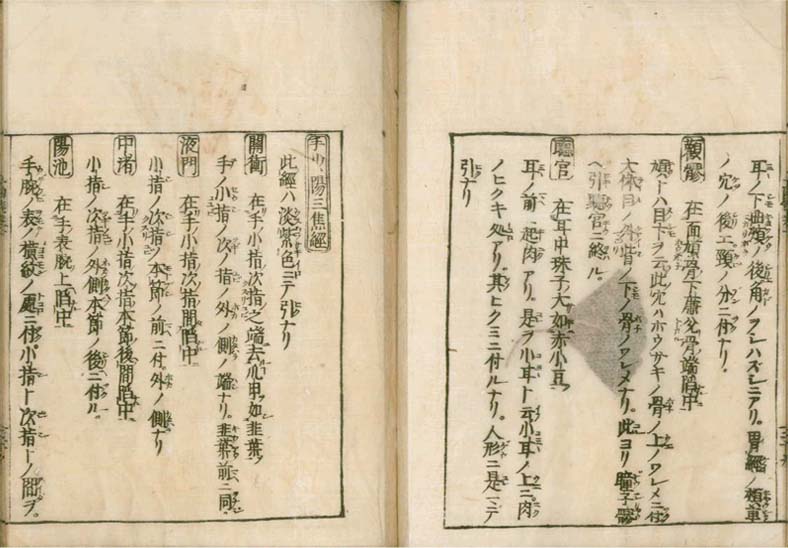 耳ノ下曲頬ノ後角ノワレハズレニアリ。胃經ノ頬車
ノ穴ノ後エ頸ノ分ニ付ナリ。
顴髎 在面頄骨下廉兌骨端陷中
頄トハ目下ヲ云此穴ハホウサキノ骨ノ上ノワレメニ付
大体目ノ外眥ノ下ノ骨ノワレメナリ。此ヨリ瞳子髎
ヘ引聽宮ニ終ル。
聽宮 在耳中珠子大如赤小豆
耳ノ前ニ起肉アリ。是ヲ小耳ト云小耳ノ上ニ肉
ノヒクキ処アリ。其ヒクミニ付ルナリ。人形ニ是マデ
引ナリ
手少陽三焦經
此經ハ淡紫色ニテ引ナリ
關衝 在手小指次指之端去爪甲如韭葉
手ノ小指ノ次ノ指ノ外ノ側ノ端ナリ。韭葉前ニ同。
液門 在手小指次指間陷中
小指ノ次指ノ本節ノ前ニ付。外ノ側ナリ
中渚 在手小指次指本節後間陷中
小指ノ次指ノ外側本節ノ後ニ付ル。
陽池 在手表腕上陷中
手腕ノ表ノ横紋ノ処ニ付。小指ト次指トノ間ヲ。